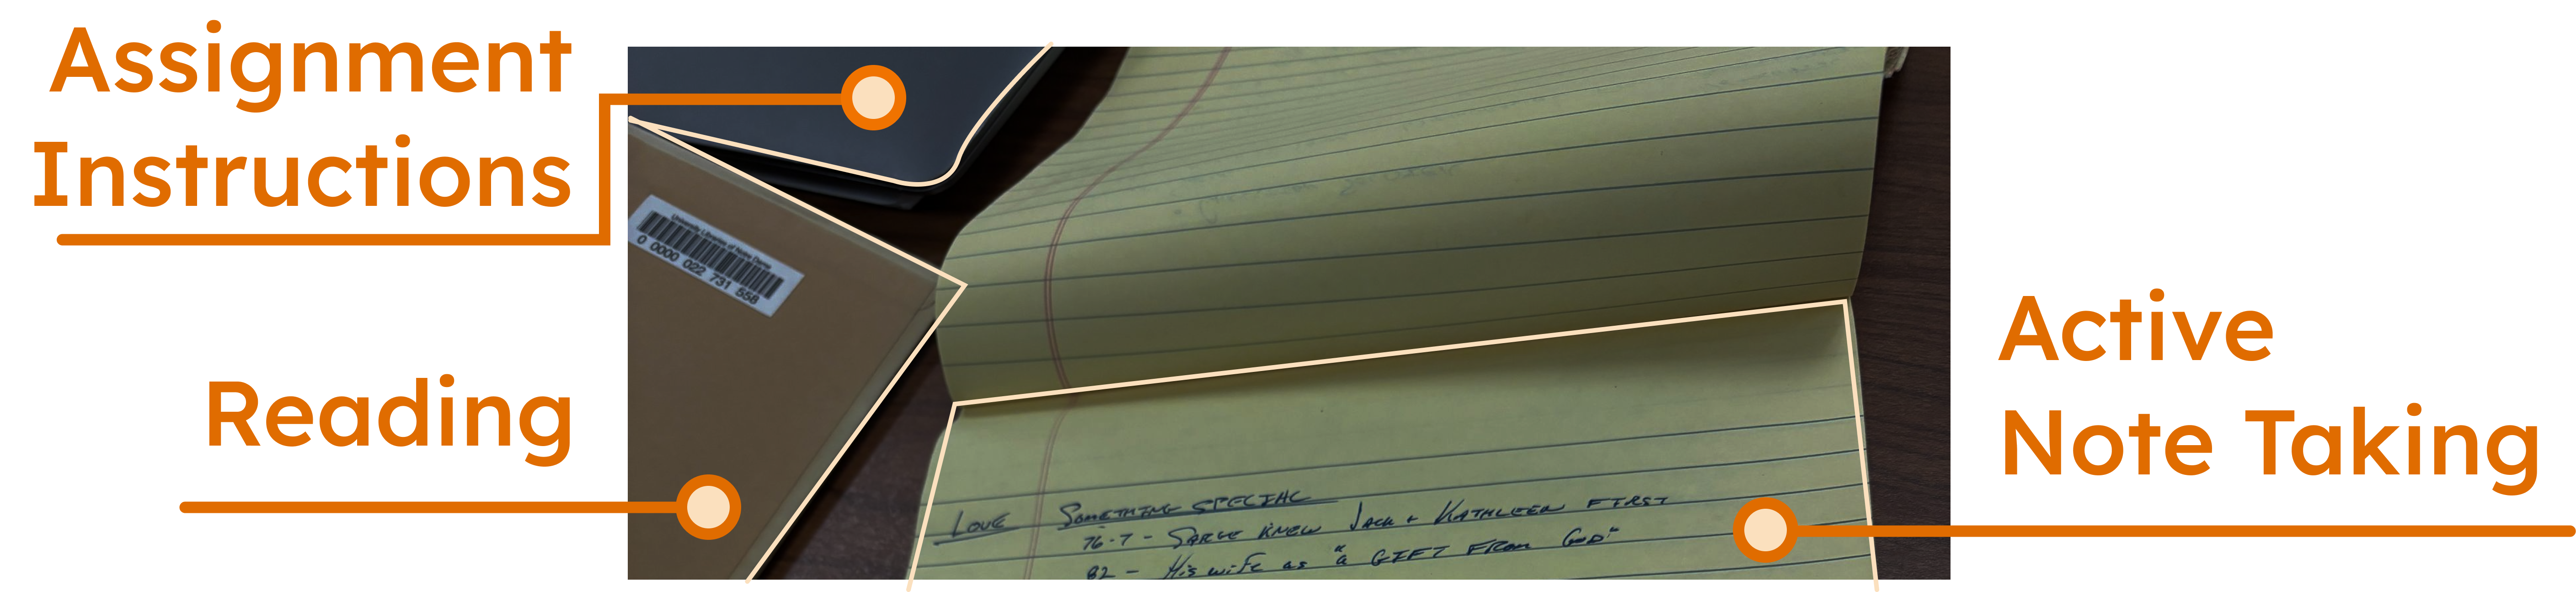 Assignment
Instructions
Reading
University Libraries of Notre Dame
0 0000 022 731 558
Active
Note Taking
LOVE SOMETHING SPECIAL
76-7 - SARGE KNEW JACK + KATHLEEN FIRST
82 - His wife as "a GIFT FROM GOD"